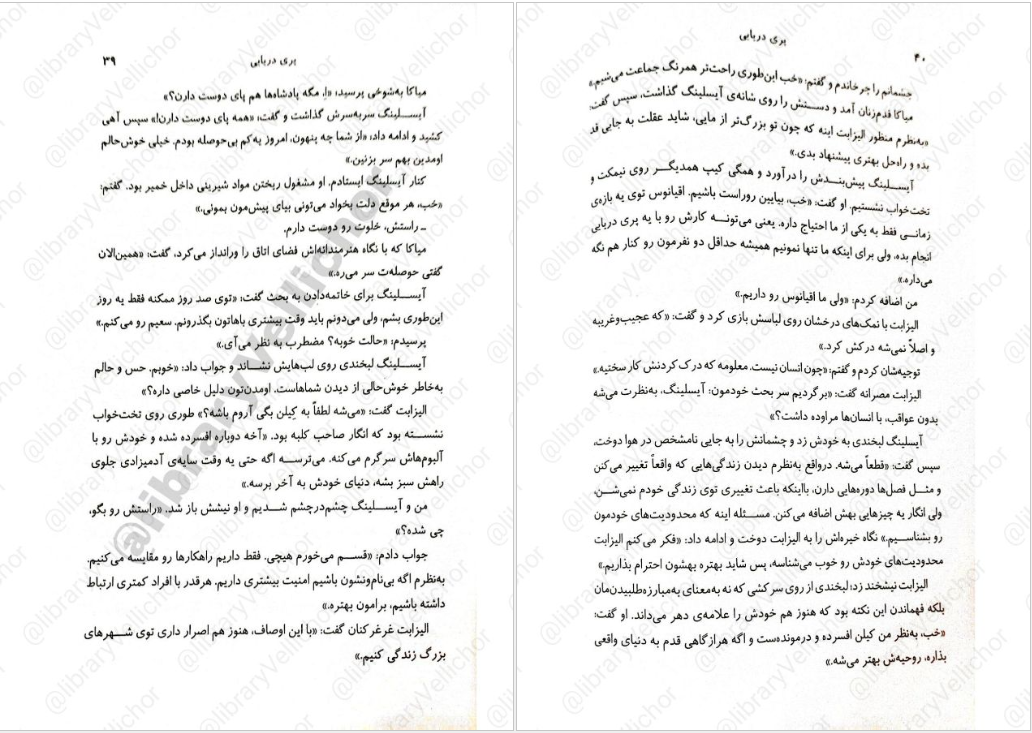 ۳۹
پری دریایی
میاکا به‌شوخی پرسید: «اِ، مگه پادشاه‌ها هم پای دوست دارن؟»
آیســلینگ سربه‌سرش گذاشت و گفت: «همه پای دوست دارن!» سپس آهی
کشید و ادامه داد: «از شما چه پنهون، امروز یه‌کم بی‌حوصله بودم. خیلی خوش‌حالم
اومدین بهم سر بزنین.»
کنار آیسلینگ ایستادم. او مشغول ریختن مواد شیرینی داخل خمیر بود. گفتم:
«خب، هر موقع دلت بخواد می‌تونی بیای پیش‌مون بمونی.»
ـ راستش، خلوت رو دوست دارم.
میاکا که با نگاه هنرمندانه‌اش فضای اتاق را ورانداز می‌کرد، گفت: «همین‌الان
گفتی حوصله‌ت سر می‌ره.»
آیســلینگ برای خاتمه‌دادن به بحث گفت: «توی صد روز ممکنه فقط یه روز
این‌طوری بشم، ولی می‌دونم باید وقت بیشتری باهاتون بگذرونم. سعیم رو می‌کنم.»
پرسیدم: «حالت خوبه؟ مضطرب به نظر می‌آی.»
آیســلینگ لبخندی روی لب‌هایش نشــاند و جواب داد: «خوبم. حس و حالم
به‌خاطر خوش‌حالی از دیدن شماهاست. اومدن‌تون دلیل خاصی داره؟»
الیزابت گفت: «می‌شه لطفاً به کیلن بگی آروم باشه؟» طوری روی تخت‌خواب
نشســته بود که انگار صاحب کلبه بود. «آخه دوباره افسرده شده و خودش رو با
آلبوم‌هاش سرگرم می‌کنه. می‌ترســه اگه حتی یه وقت سایه‌ی آدمیزادی جلوی
راهش سبز بشه، دنیای خودش به آخر برسه.»
من و آیســلینگ چشم‌درچشم شدیم و او نیشش باز شد. «راستش رو بگو،
چی شده؟»
جواب دادم: «قســم می‌خورم هیچی. فقط داریم راهکارها رو مقایسه می‌کنیم.
به‌نظرم اگه بی‌نام‌ونشون باشیم امنیت بیشتری داریم. هرقدر با افراد کمتری ارتباط
داشته باشیم، برامون بهتره.»
الیزابت غرغرکنان گفت: «با این اوصاف، هنوز هم اصرار داری توی شــهرهای
بزرگ زندگی کنیم.»
پری دریایی
۴۰
چشمانم را چرخاندم و گفتم: «خب این‌طوری راحت‌تر همرنگ جماعت می‌شیم.»
میاکا قدم‌زنان آمد و دســتش را روی شانه‌ی آیسلینگ گذاشت، سپس گفت:
«به‌نظرم منظور الیزابت اینه که چون تو بزرگ‌تر از مایی، شاید عقلت به جایی قد
بده و راه‌حل بهتری پیشنهاد بدی.»
آیســلینگ پیش‌بنــدش را درآورد و همگی کیپ همدیگــر روی نیمکت و
تخت‌خواب نشستیم. او گفت: «خب، بیایین روراست باشیم. اقیانوس توی یه بازه‌ی
زمانــی فقط به یکی از ما احتیاج داره. یعنی می‌تونــه کارش رو با یه پری دریایی
انجام بده، ولی برای اینکه ما تنها نمونیم همیشه حداقل دو نفرمون رو کنار هم نگه
می‌داره.»
من اضافه کردم: «ولی ما اقیانوس رو داریم.»
الیزابت با نمک‌های درخشان روی لباسش بازی کرد و گفت: «که عجیب‌وغریبه
و اصلاً نمی‌شه درکش کرد.»
توجیه‌شان کردم و گفتم: «چون انسان نیست. معلومه که درک کردنش کار سختیه.»
الیزابت مصرانه گفت: «برگردیم سر بحث خودمون؛ آیسلینگ، به‌نظرت می‌شه
بدون عواقب، با انسان‌ها مراوده داشت؟»
آیسلینگ لبخندی به خودش زد و چشمانش را به جایی نامشخص در هوا دوخت،
سپس گفت: «قطعاً می‌شه. درواقع به‌نظرم دیدن زندگی‌هایی که واقعاً تغییر می‌کنن
و مثــل فصل‌ها دوره‌هایی دارن، بااینکه باعث تغییری توی زندگی خودم نمی‌شن،
ولی انگار یه چیزهایی بهش اضافه می‌کنن. مســئله اینه که محدودیت‌های خودمون
رو بشناســیم.» نگاه خیره‌اش را به الیزابت دوخت و ادامه داد: «فکر می‌کنم الیزابت
محدودیت‌های خودش رو خوب می‌شناسه، پس شاید بهتره بهشون احترام بذاریم.»
الیزابت نیشخند زد؛ لبخندی از روی سرکشی که نه به‌معنای به‌مبارزه‌طلبیدن‌مان
بلکه فهماندن این نکته بود که هنوز هم خودش را علامه‌ی دهر می‌داند. او گفت:
«خب، به‌نظر من کیلن افسرده و درمونده‌ست و اگه هرازگاهی قدم به دنیای واقعی
بذاره، روحیه‌ش بهتر می‌شه.»
@libraryVellichor